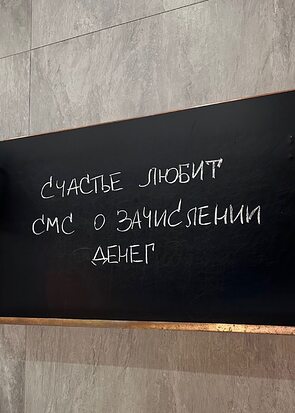 СЧАСТЬЕ ЛЮБИТ
СМС О ЗАЧИСЛЕНИИ
ДЕНЕГ